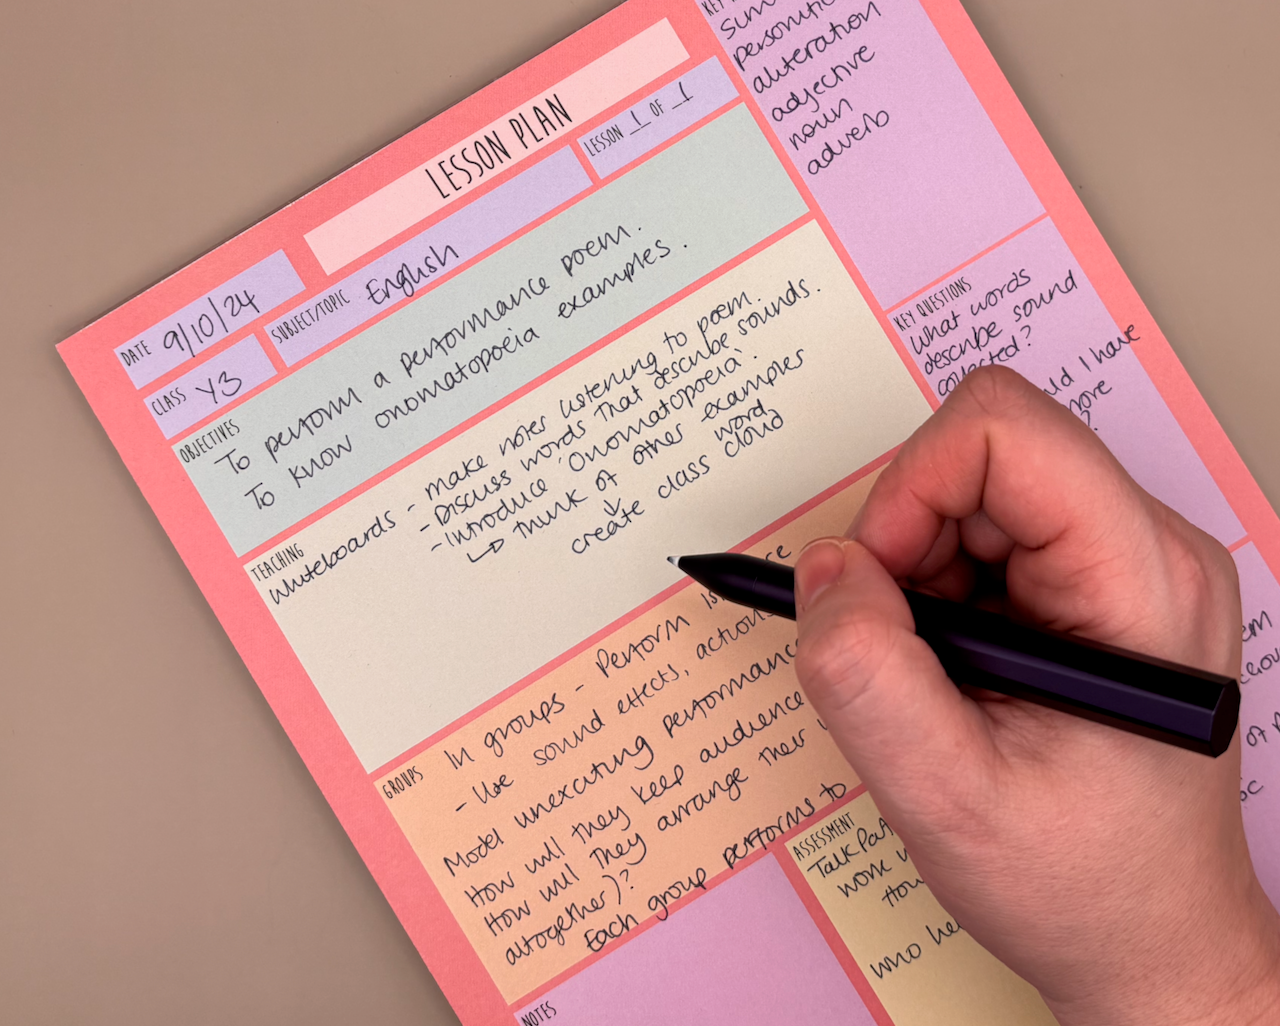 LESSON PLAN
DATE 9/10/24
SUBJECT/TOPIC English
LESSON 1 OF 1
CLASS Y3
OBJECTIVES
To perform a performance poem.
To know onomatopoeia examples.
TEACHING
Whiteboards - make notes listening to poem.
- Discuss words that describe sounds.
- Introduce 'Onomatopoeia'.
↳ Think of other examples
↓
create class word cloud
GROUPS
In groups - Perform
- Use sound effects, actions
Model unexciting performance
How will they keep audience
How will they arrange their
altogether)?
Each group performs to
NOTES
alliteration
adjective
noun
adverb
KEY QUESTIONS
What words
describe sound
I have
more
ASSESSMENT
work
who
of